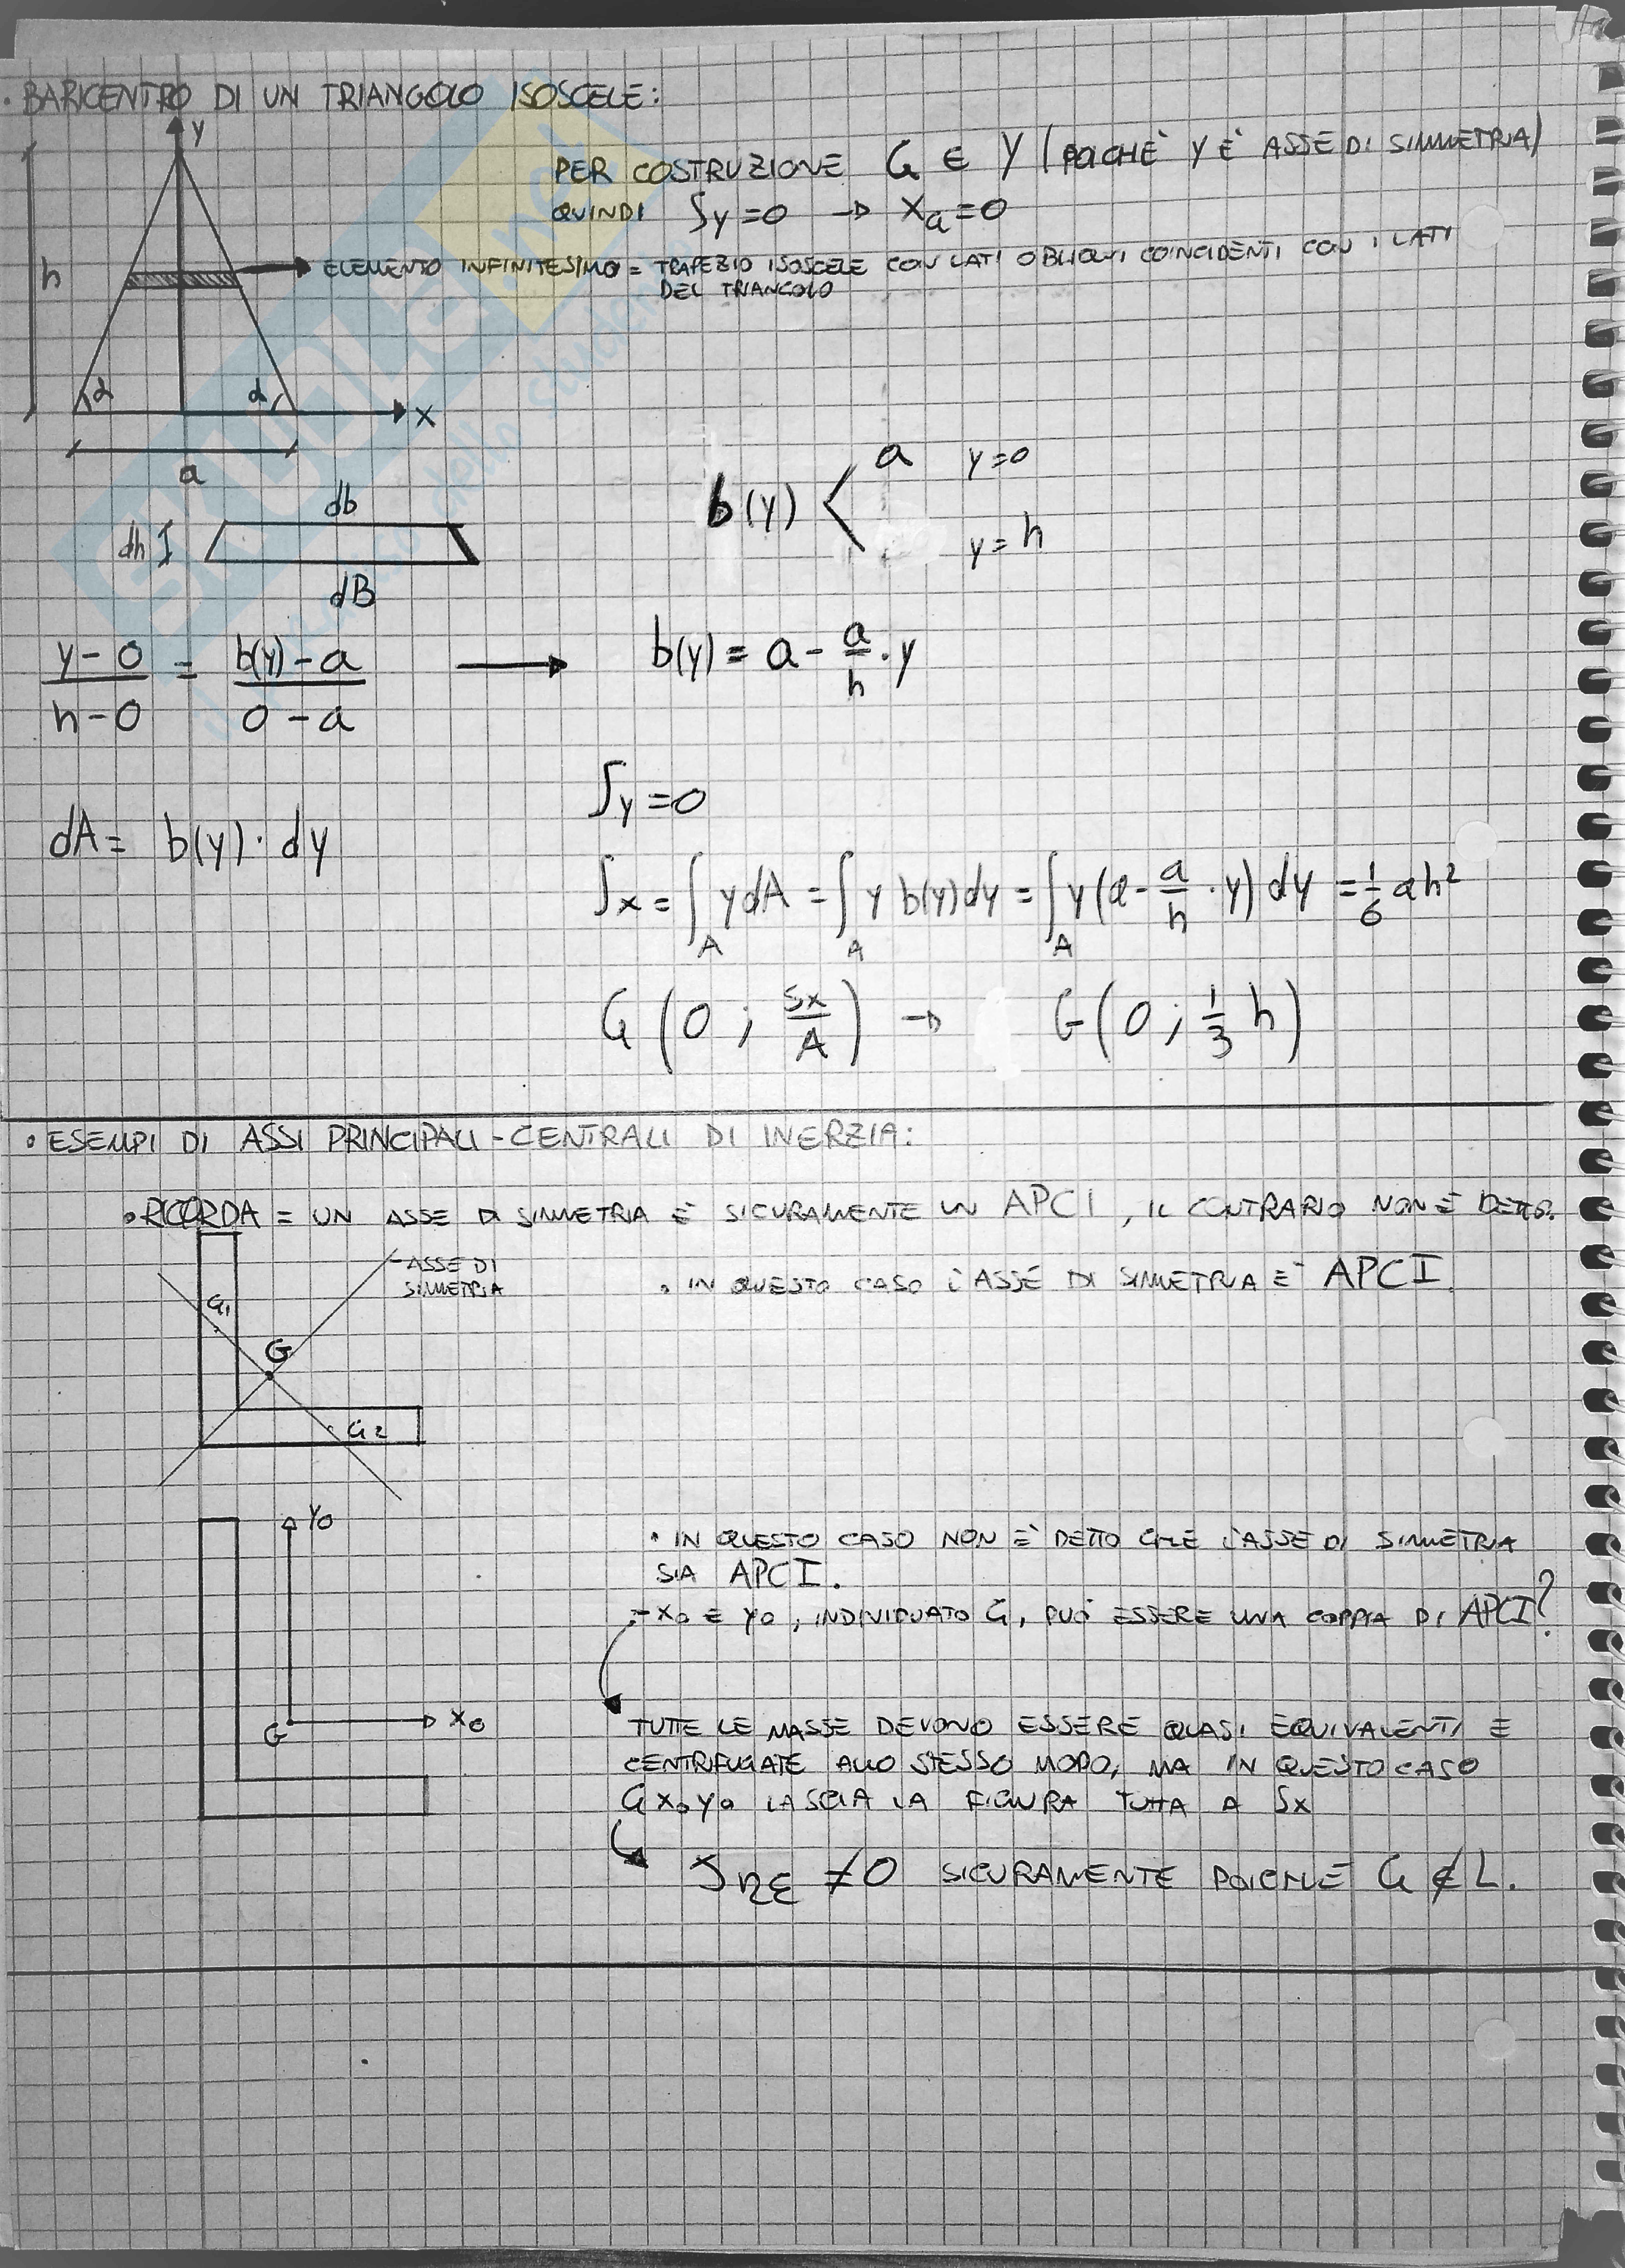 • BARICENTRO DI UN TRIANGOLO ISOSCELE:
y
PER COSTRUZIONE G ∈ Y (POICHÈ Y È ASSE DI SIMMETRIA)
QUINDI Sy=0 → XG=0
h
ELEMENTO INFINITESIMO = TRAPEZIO ISOSCELE CON LATI OBLIQUI COINCIDENTI CON I LATI
DEL TRIANGOLO
α α
x
a
b(y) < a y=0
y=h
db
dh
dB
(y-0)/(h-0) = (b(y)-a)/(0-a) → b(y) = a - a/h · y
Sy=0
dA = b(y) · dy
Sx = ∫A y dA = ∫A y b(y) dy = ∫A y (a - a/h · y) dy = 1/6 ah²
G (0 ; Sx/A) → G (0 ; 1/3 h)
• ESEMPI DI ASSI PRINCIPALI-CENTRALI DI INERZIA:
• RICORDA = UN ASSE DI SIMMETRIA È SICURAMENTE UN APCI, IL CONTRARIO NON È DETTO.
ASSE DI
SIMMETRIA
• IN QUESTO CASO L'ASSE DI SIMMETRIA È APCI.
G1
G
G2
Y0
• IN QUESTO CASO NON È DETTO CHE L'ASSE DI SIMMETRIA
SIA APCI.
- X0 E Y0, INDIVIDUATO G, PUÒ ESSERE UNA COPPIA DI APCI?
G X0
TUTTE LE MASSE DEVONO ESSERE QUASI EQUIVALENTI E
CENTRIFUGATE ALLO STESSO MODO, MA IN QUESTO CASO
G X0 Y0 LASCIA LA FIGURA TUTTA A SX
Jηξ ≠0 SICURAMENTE POICHÈ G ∉ L.
SKUOLA.net
il paradiso dello studente